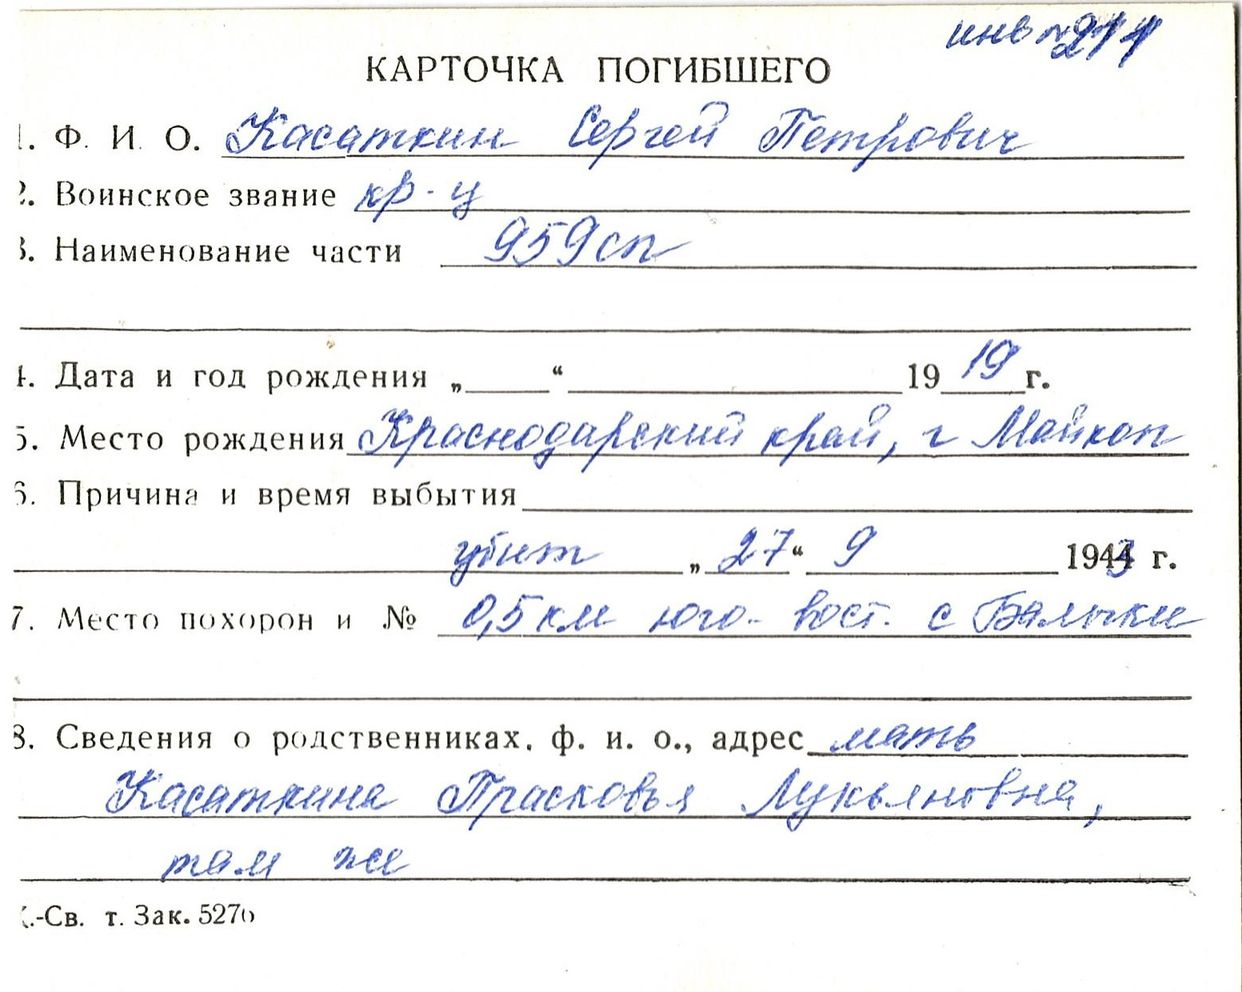 инв №211
КАРТОЧКА ПОГИБШЕГО
1. Ф. И. О. Касаткин Сергей Петрович
2. Воинское звание кр-ц
3. Наименование части 959сп
4. Дата и год рождения „ “ 1919 г.
5. Место рождения Краснодарский край, г Майкоп
6. Причина и время выбытия
убит „27“ 9 1943 г.
7. Место похорон и № 0,5 км юго-вост. с Балыки
8. Сведения о родственниках, ф. и. о., адрес мать
Касаткина Прасковья Лукьяновна,
там же
.-Св. т. Зак. 5276